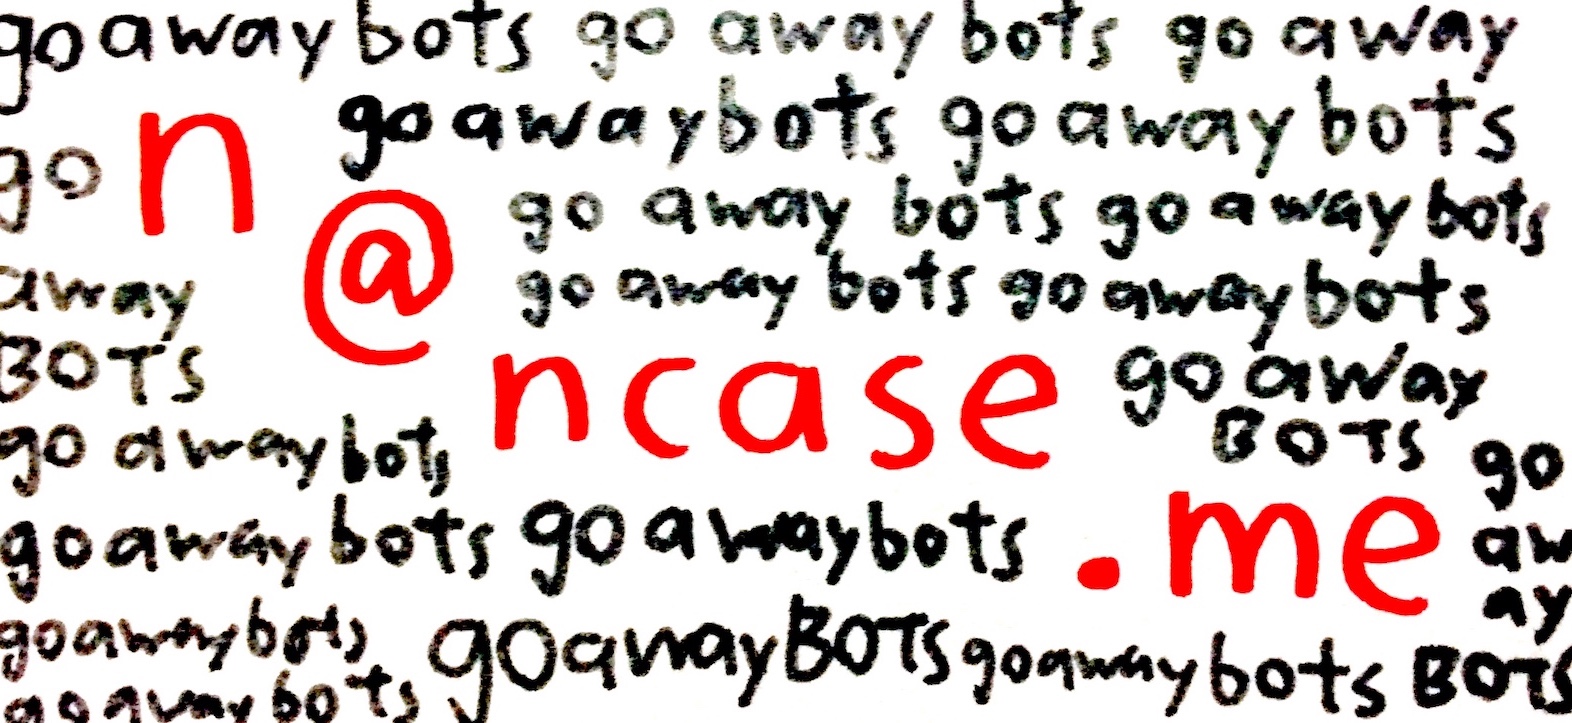 go away bots go away bots go away
go n go away bots go away bots
@ go away bots go away bots
away go away bots go away bots
BOTS ncase go away
BOTS
go away bots go
go away bots go away bots .me aw
ay
go away bots go away BOTS go away bots BOTS
go away bots